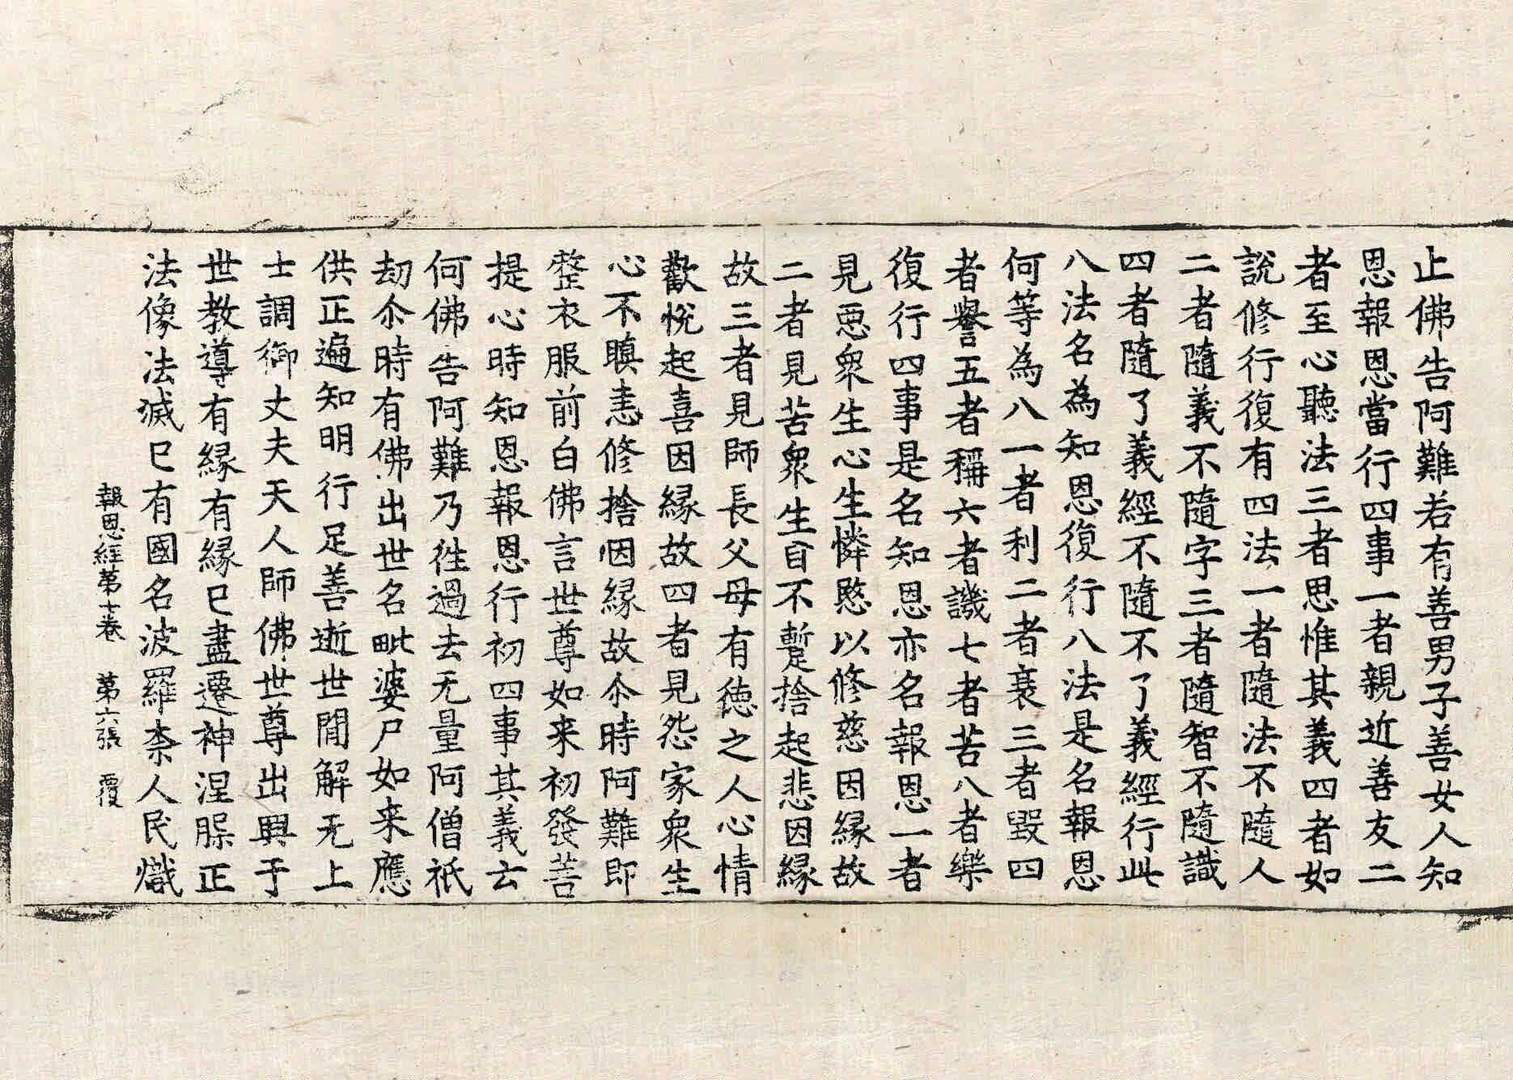 止佛告阿難若有善男子善女人知
恩報恩當行四事一者親近善友二
者至心聽法三者思惟其義四者如
說修行復有四法一者隨法不隨人
二者隨義不隨字三者隨智不隨識
四者隨了義經不隨不了義經行此
八法名為知恩復行八法是名報恩
何等為八一者利二者衰三者毀四
者譽五者稱六者譏七者苦八者樂
復行四事是名知恩亦名報恩一者
見惡眾生心生憐愍以修慈因緣故
二者見苦眾生目不蹔捨起悲因緣
故三者見師長父母有德之人心情
歡悅起喜因緣故四者見怨家眾生
心不瞋恚修捨因緣故尒時阿難即
整衣服前白佛言世尊如来初發菩
提心時知恩報恩行初四事其義云
何佛告阿難乃徃過去无量阿僧祇
劫尒時有佛出世名毗婆尸如来應
供正遍知明行足善逝世間解无上
士調御丈夫天人師佛世尊出興于
世教導有緣有緣已盡遷神涅槃正
法像法滅已有國名波羅柰人民熾
報恩經第七卷　第六張　覆